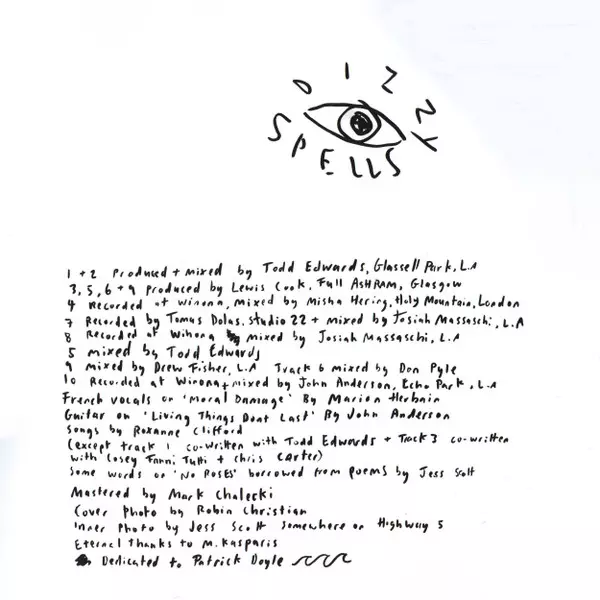 DIZZY
SPELLS
1 + 2 Produced + mixed by Todd Edwards, Glassell Park, L.A
3, 5, 6 + 9 produced by Lewis Cook, Full ASHRAM, Glasgow
4 Recorded at Winona, Mixed by Misha Hering, Holy Mountain, London
7 Recorded by Tomas Dolas, Studio 22 + mixed by Josiah Massaschi, L.A
8 Recorded at Winona mixed by Josiah Massaschi, L.A
5 mixed by Todd Edwards
9 mixed by Drew Fisher, L.A Track 6 mixed by Don Pyle
10 Recorded at Winona + mixed by John Anderson, Echo Park, L.A
French vocals on 'Moral Damage' By Marion Herbain
Guitar on 'Living Things Dont Last' By John Anderson
Songs by Roxanne Clifford
(except track 1 co-written with Todd Edwards + Track 3 co-written
with Cosey Fanni Tutti + Chris Carter)
Some words on 'No Roses' borrowed from poems by Jess Scott
Mastered by Mark Chalecki
Cover Photo by Robin Christian
Inner Photo by Jess Scott Somewhere on Highway 5
Eternal thanks to M. Kasparis
Dedicated to Patrick Doyle